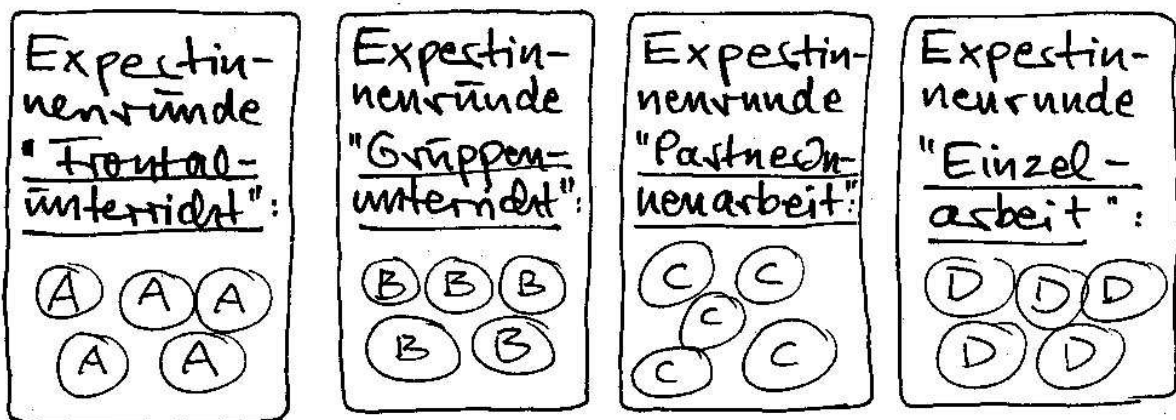 Expertin-
nenrunde
"Frontal-
unterricht":
A A A
A A
Expertin-
nenrunde
"Gruppen-
unterricht":
B B B
B B
Expertin-
nenrunde
"Partnerin-
nenarbeit":
C C
C
C C
Expertin-
nenrunde
"Einzel-
arbeit":
D D D
D D